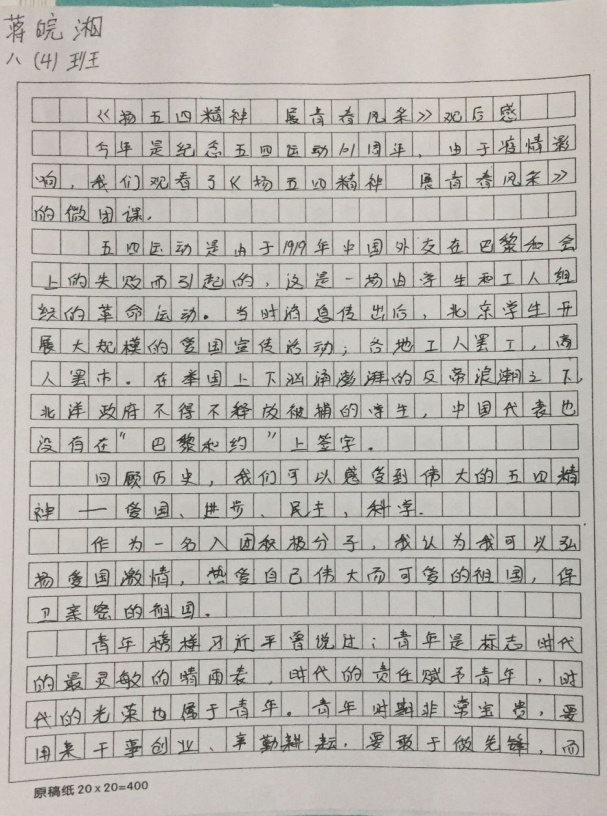 蒋皖湘
八（4）班
《扬五四精神 展青春风采》观后感
今年是纪念五四运动101周年，由于疫情影
响，我们观看了《扬五四精神 展青春风采》
的微团课.
五四运动是由于1919年中国外交在巴黎和会
上的失败而引起的，这是一场由学生和工人组
织的革命运动。当时消息传出后，北京学生开
展大规模的爱国宣传活动；各地工人罢工，商
人罢市。在举国上下汹涌澎湃的反帝浪潮之下，
北洋政府不得不释放被捕的学生，中国代表也
没有在“巴黎和约”上签字。
回顾历史，我们可以感受到伟大的五四精
神——爱国、进步、民主，科学.
作为一名入团积极分子，我认为我可以弘
扬爱国激情，热爱自己伟大而可爱的祖国，保
卫亲密的祖国。
青年榜样习近平曾说过：青年是标志时代
的最灵敏的晴雨表，时代的责任赋予青年，时
代的光荣也属于青年。青年时期非常宝贵，要
用来干事创业、辛勤耕耘，要敢于做先锋，而
原稿纸20×20=400